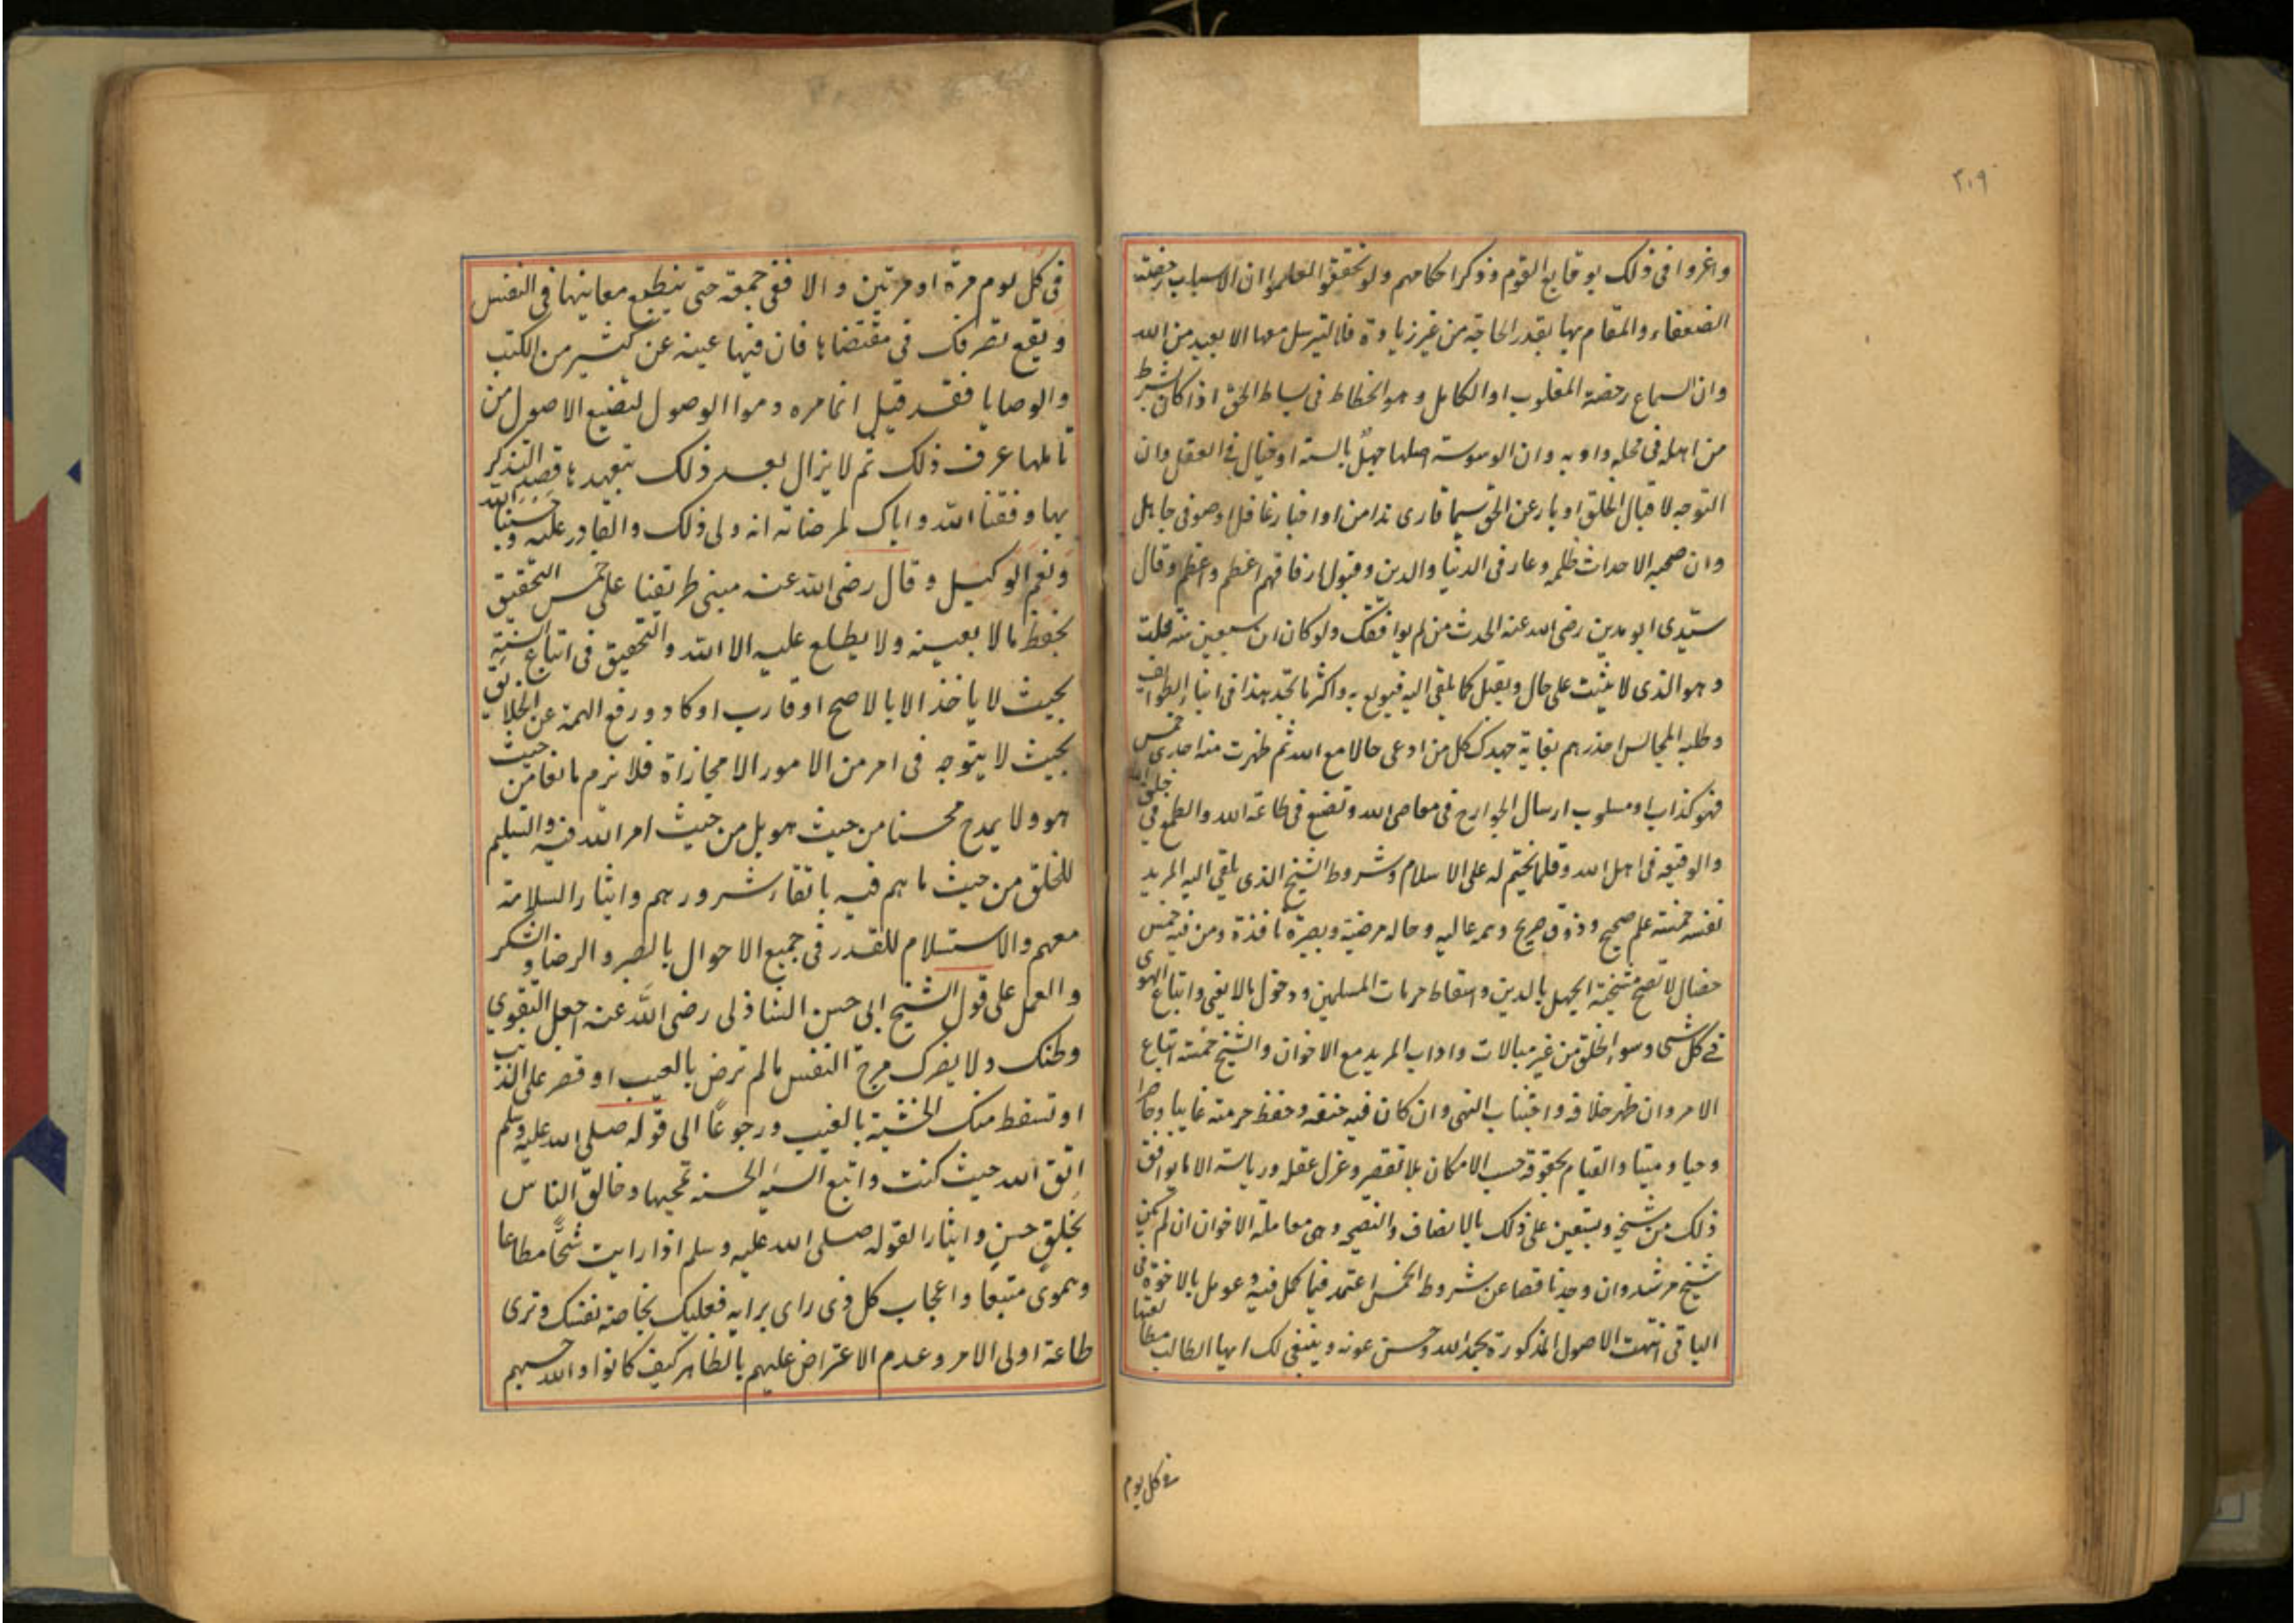 ٢٠٩
واغروا فى ذلك بوقايع القوم وذكر احكامهم ولو تحققوا لعلموا ان الاسباب رخصة
الضعفاء والمقام بها بقدر الحاجة من غير زيادة فلا يترسل معها الا بعيد من الله
وان السماع رخصة المغلوب او الكامل وهو انحطاط فى بساط الحق اذا كان بشرط
من اهله فى محله وادبه وان الوسوسة اصلها جهل بالسنة او خبال فى العقل وان
التوجه لاقبال الخلق ادبار عن الحق سيما قارى مداهن او اخبار غافل او صوفى جاهل
وان صحبة الاحداث ظلمة وعار فى الدنيا والدين وقبول ارفاقهم اعظم واعظم وقال
سيدى ابو مدين رضى الله عنه الحدث من لم يوافقك ولو كان ابن سبعين سنة قلت
وهو الذى لا يثبت على حال ويقبل كلما يلقى اليه فيولع به واكثر ما تجد هذا فى ابناء الطوائف
وطلبة المجالس احذرهم بغاية جهدك كل من ادعى حالا مع الله ثم ظهرت منه احدى خمس
فهو كذاب او مسلوب ارسال الجوارح فى معاصى الله وتصنع فى طاعة الله والطمع فى خلق الله
والوقيعة فى اهل الله وقلما يختم له على الاسلام وشروط الشيخ الذى يلقى اليه المريد
نفسه خمسة علم صحيح وذوق صريح وهمة عالية وحالة مرضية وبصيرة نافذة ومن فيه خمس
خصال لا تصح مشيخته الجهل بالدين واسقاط حرمات المسلمين ودخول مالا يعنى واتباع الهوى
فى كل شى وسوء الخلق من غير مبالات واداب المريد مع الاخوان والشيخ خمسة اتباع
الامر وان ظهر خلافه واجتناب النهى وان كان فيه حتفه وحفظ حرمته غايبا وحاضرا
وحيا وميتا والقيام بحقوقه حسب الامكان بلا تقصير وعزل عقله ورياسته الا ما يوافق
ذلك من شيخه ويستعين على ذلك بالانصاف والنصيحة وهى معاملة الاخوان ان لم يكن
شيخ مرشد وان وجد ناقصا عن شروط الخمس اعتمد فيما كمل فيه وعومل بالاخوة فى
الباقى انتهت الاصول المذكورة بحمد الله وحسن عونه وينبغى لك ايها الطالب مطالعتها
فى كل يوم
فى كل يوم مرة او مرتين والا ففى جمعة حتى ينطبع معانيها فى النفس
ويقع تصرفك فى مقتضاها فان فيها غنية عن كثير من الكتب
والوصايا فقد قيل انما حرموا الوصول لتضيع الاصول من
تاملها عرف ذلك ثم لا يزال بعد ذلك يتعهدها قصد التذكر
بها وفقنا الله واياك لمرضاته انه ولى ذلك والقادر عليه وحسبنا الله
ونعم الوكيل وقال رضى الله عنه مبنى طريقنا على خمس التحقيق
بحفظ مالا يعينه ولا يطلع عليه الا الله والتحقيق فى اتباع السنة
بحيث لا ياخذ الا بالاصح او قارب او كاد ورفع الهمة عن الخلايق
بحيث لا يتوجه فى امر من الامور الا مجازاة فلا نزم مانعا من حيث
هو ولا يمدح محسنا من حيث هو بل من حيث امر الله فيه والتسليم
للخلق من حيث ما هم فيه باتقاء شرورهم وايثار السلامة
معهم والاستسلام للقدر فى جميع الاحوال بالصبر والرضا والشكر
والعمل على قول الشيخ ابى حسن الشاذلى رضى الله عنه اجعل التقوى
وطنك ولا يضرك مرح النفس مالم ترض بالعيب او تصر على الذنب
او تسقط منك الخشية بالغيب ورجوعًا الى قوله صلى الله عليه وسلم
اتق الله حيث كنت واتبع السيئه الحسنه تمحيها وخالق الناس
بخلق حسن وايثارا لقوله صلى الله عليه وسلم اذا رايت شحًّا مطاعا
وهوى متبعا واعجاب كل ذى راى برايه فعليك بخاصة نفسك وترى
طاعة اولى الامر وعدم الاعتراض عليهم بالظاهر كيف كانوا والله حسبهم